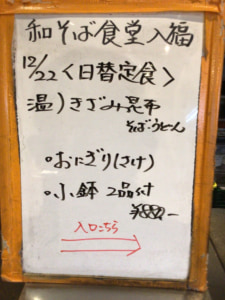 和そば食堂入福
12/22〈日替定食〉
温)きざみ昆布
そば・うどん
○おにぎり(さけ)
○小鉢 2品付
入口こちら